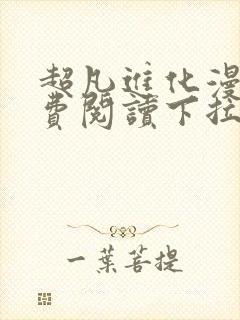 超凡進化漫
費閱讀下拉
一葉菩提